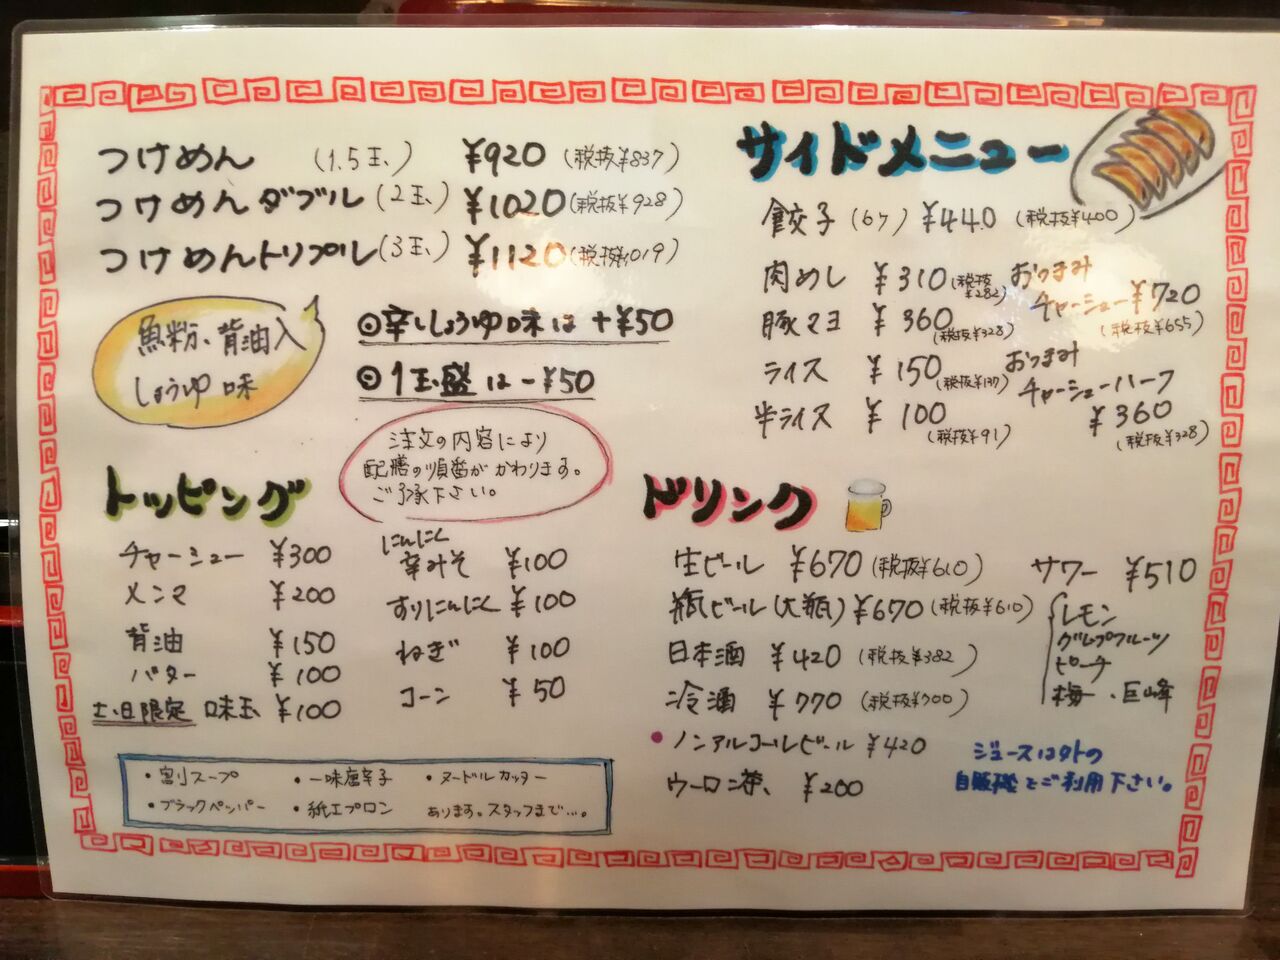 つけめん (1.5玉) ¥920 (税抜¥837)
つけめんダブル (2玉) ¥1020 (税抜¥928)
つけめんトリプル (3玉) ¥1120 (税抜¥1019)
魚粉、背油入
しょうゆ味
◎辛いしょうゆ味は +¥50
◎1玉盛は -¥50
注文の内容により
配膳の順番がかわります。
ご了承下さい。
トッピング
チャーシュー ¥300
メンマ ¥200
背油 ¥150
バター ¥100
土、日限定 味玉 ¥100
にんにく
辛みそ ¥100
すりにんにく ¥100
ねぎ ¥100
コーン ¥50
・割りスープ ・一味唐辛子 ・ヌードルカッター
・ブラックペンパー ・紙エプロン あります。スタッフまで…。
サイドメニュー
餃子 (6ケ) ¥440 (税抜¥400)
肉めし ¥310 (税抜¥282)
豚マヨ ¥360 (税抜¥328)
ライス ¥150 (税抜¥137)
半ライス ¥100 (税抜¥91)
おつまみ
チャーシュー ¥720
(税抜¥655)
おつまみ
チャーシューハーフ
¥360
(税抜¥328)
ドリンク
生ビール ¥670 (税抜¥610)
瓶ビール (大瓶) ¥670 (税抜¥610)
日本酒 ¥420 (税抜¥382)
冷酒 ¥770 (税抜¥700)
・ノンアルコールビール ¥420
ウーロン茶、 ¥200
サワー ¥510
レモン
グレープフルーツ
ピーチ
梅、巨峰
ジュースは外の
自販機をご利用下さい。